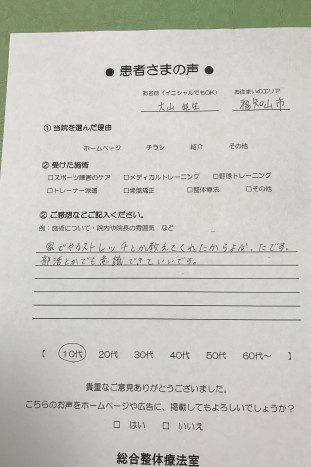 ● 患者さまの声 ●
お名前(イニシャルでもOK) お住まいのエリア
大山 福知山市
① 当院を選んだ理由
ホームページ チラシ 紹介 その他
② 受けた施術
□スポーツ障害のケア □メディカルトレーニング □野球トレーニング
□トレーナー派遣 □骨盤矯正 □整体療法 □その他
② ご感想などご記入ください。
例:施術について・院内や院長の雰囲気 など
家でやるストレッチとか教えてくれたからよかったです。
部活とかでも意識できていいです。
【 10代 20代 30代 40代 50代 60代~ 】
貴重なご意見ありがとうございました。
こちらのお声をホームページや広告に、掲載してもよろしいでしょうか?
□ はい □ いいえ
総合整体療法室